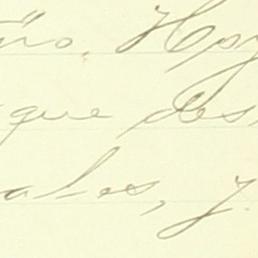 ño. Hoy
que des
ales, y